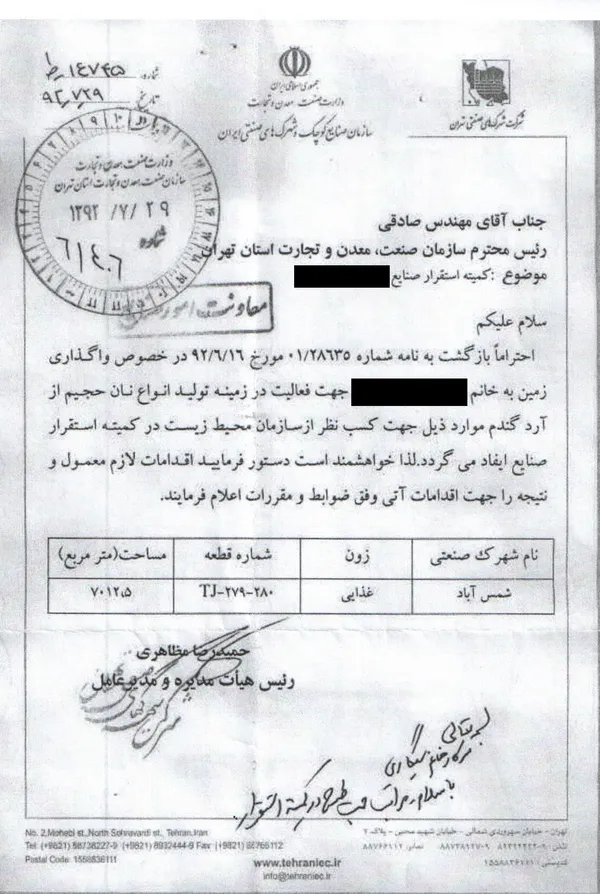 شماره: ۱۴۷۴۵
تاریخ ۹۲,۷,۲۹
جمهوری اسلامی ایران
وزارت صنعت معدن و تجارت
سازمان صنایع کوچک و شهرک های صنعتی ایران
شرکت شهرک های صنعتی تهران
وزارت صنعت، معدن و تجارت
سازمان صنعت، معدن و تجارت استان تهران
۱۳۹۲ /۷/ ۲۹
شماره
۶۱۴۰۶
معاونت امور
جناب آقای مهندس صادقی
رئیس محترم سازمان صنعت، معدن و تجارت استان تهران
موضوع :کمیته استقرار صنایع
سلام علیکم
احتراماً بازگشت به نامه شماره ۰۱/۲۸۶۳۵ مورخ ۹۲/۶/۱۶ در خصوص واگذاری
زمین به خانم جهت فعالیت در زمینه تولید انواع نان حجیم از
آرد گندم موارد ذیل جهت کسب نظر ازسازمان محیط زیست در کمیته استقرار
صنایع ایفاد می گردد.لذا خواهشمند است دستور فرمایید اقدامات لازم معمول و
نتیجه را جهت اقدامات آتی وفق ضوابط و مقررات اعلام فرمایند.
نام شهرک صنعتی زون شماره قطعه مساحت(متر مربع)
شمس آباد غذایی TJ-۲۷۹-۲۸۰ ۷۰۱۲,۵
حمیدرضا مظاهری
رئیس هیأت مدیره و مدیرعامل
بسمه تعالی
با سلام
تهران - خیابان سهروردی شمالی - خیابان شهید محبی - پلاک ۲
No. 2,Mohebi st.,North Sohravardi st., Tehran,Iran
Tel: (+9821) 88738227-9 (+9821) 8932444-9 Fax :(+9821) 88766112
نمابر: ۸۸۷۶۶۱۱۲
Postal Code: 1558836111
کدپستی: ۱۵۵۸۸۳۶۱۱۱
www.tehraniec.ir
info@tehraniec.ir